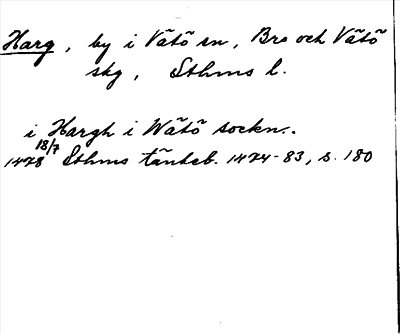 Harg, by i Vätö sn, Bro och Vätö
skg, Sthms l.
i Hargh i Wätö sockn.
18/7
1478 Sthms tänkeb. 1474-83, s. 180